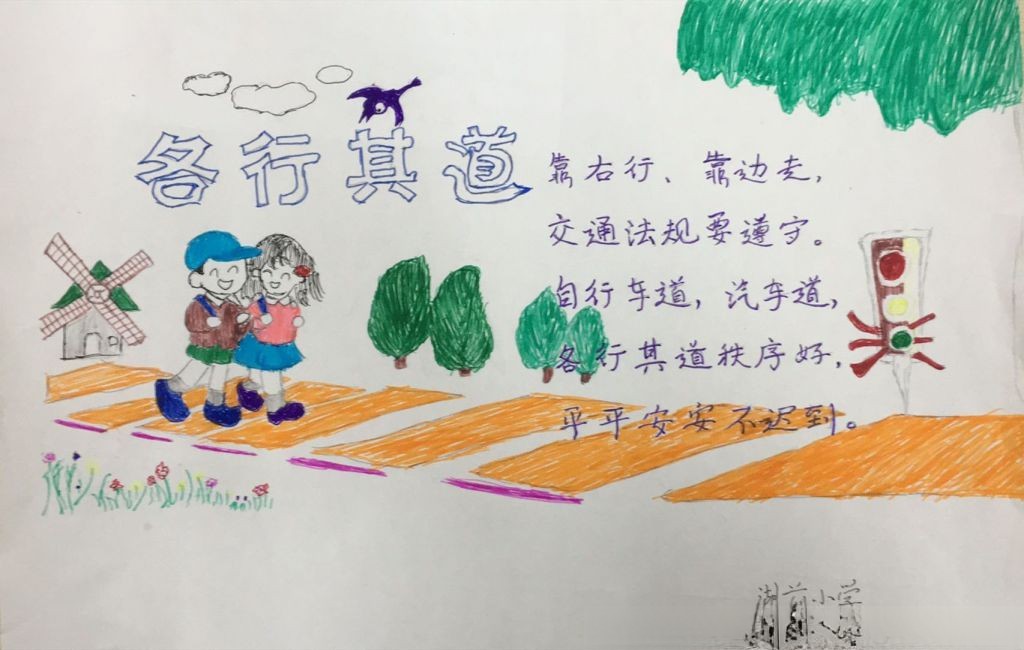 各行其道
靠右行、靠边走,
交通法规要遵守。
自行车道,汽车道,
各行其道秩序好,
平平安安不迟到。
湖前小学